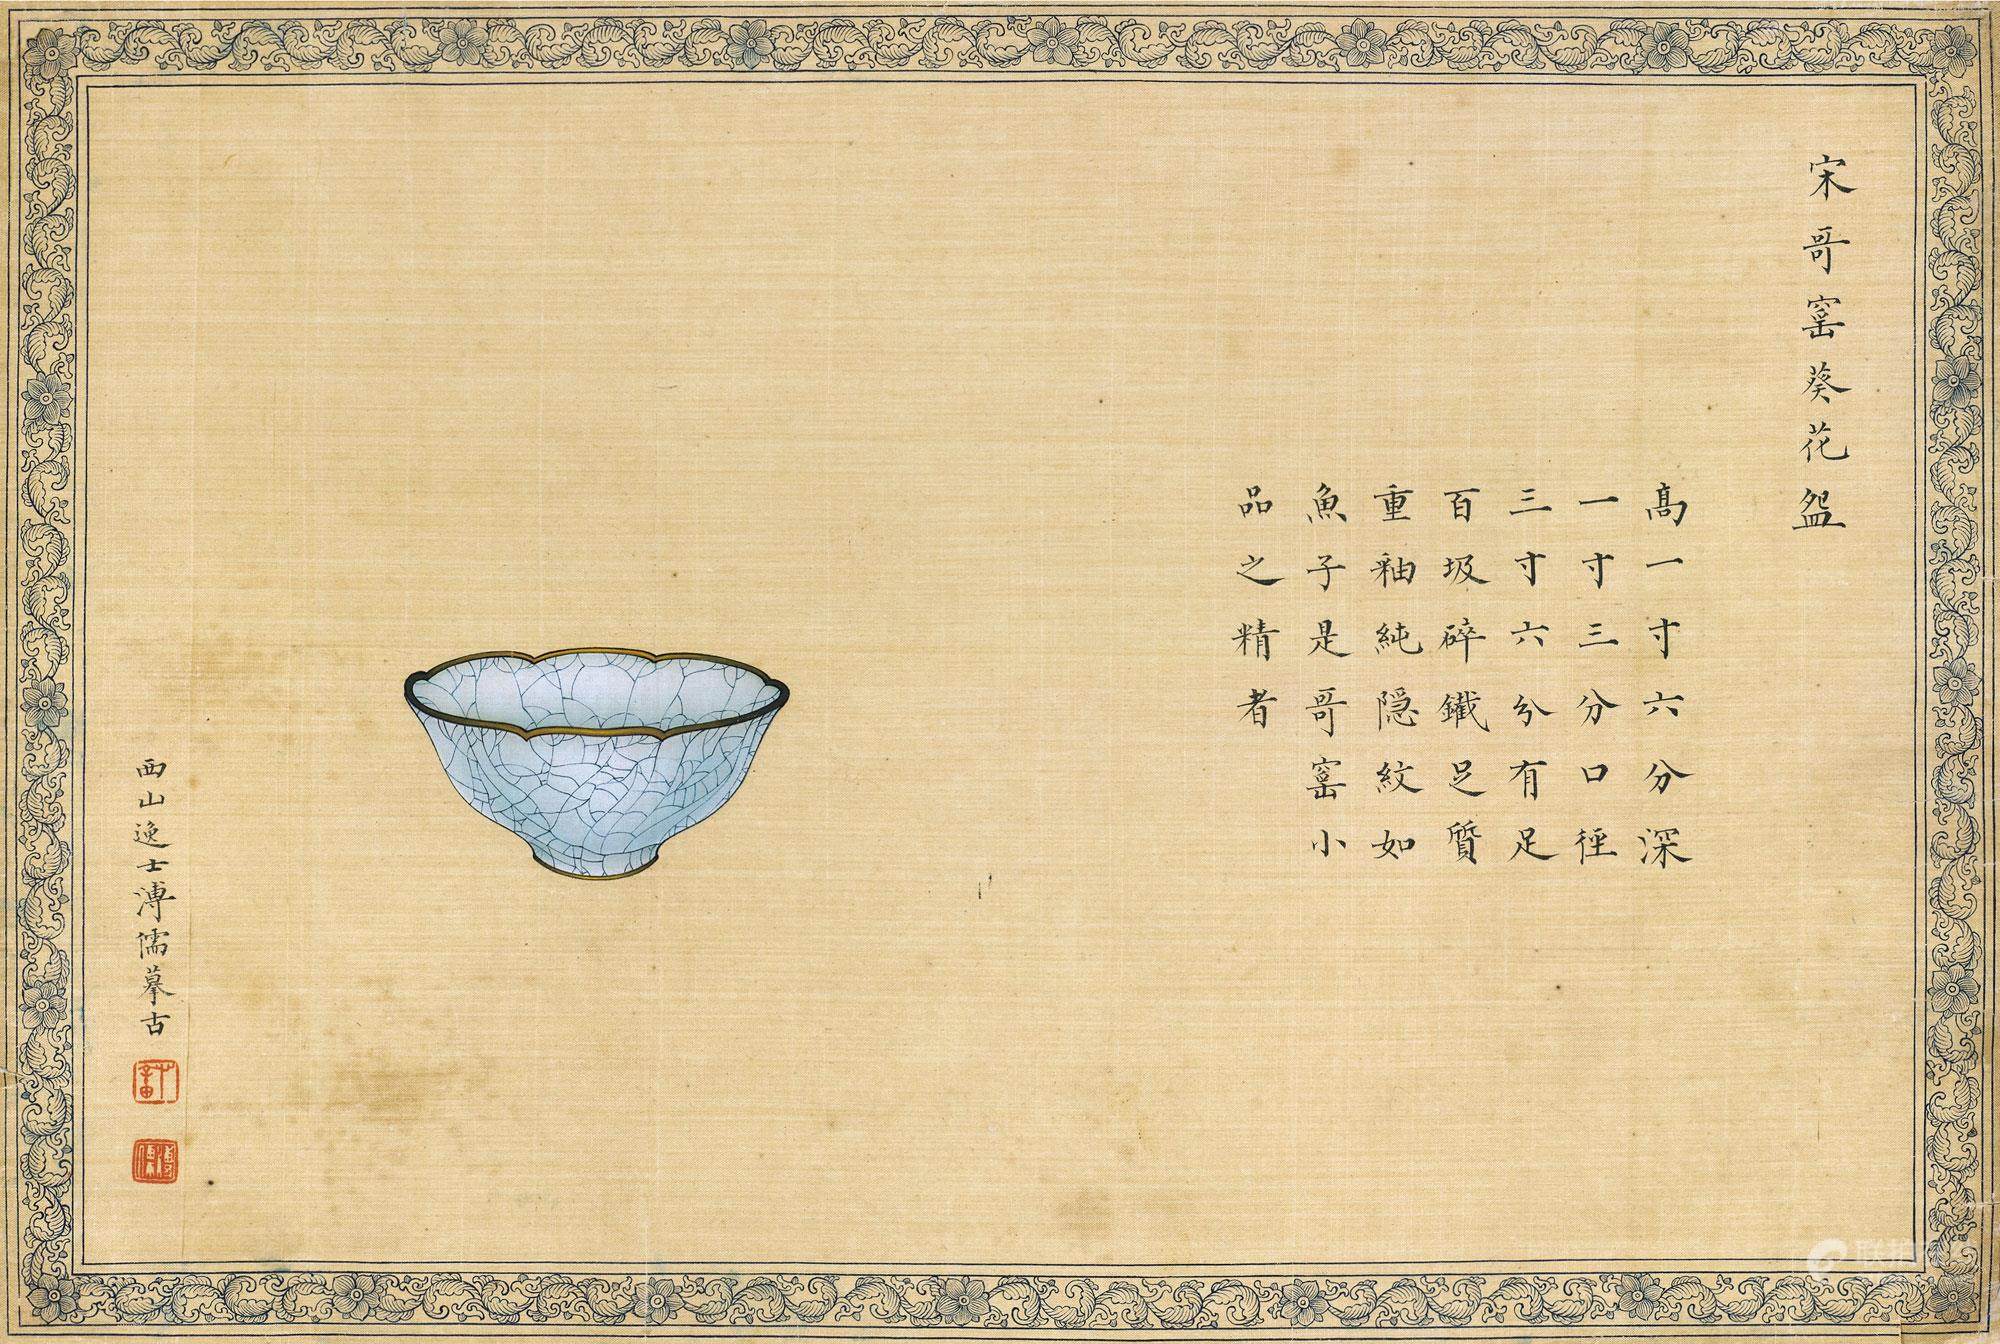 宋哥窰葵花盌
高一寸六分深
一寸三分口徑
三寸六分有足
百圾碎鐵足質
重釉純隱紋如
魚子是哥窰小
品之精者
西山逸士溥儒摹古
溥儒